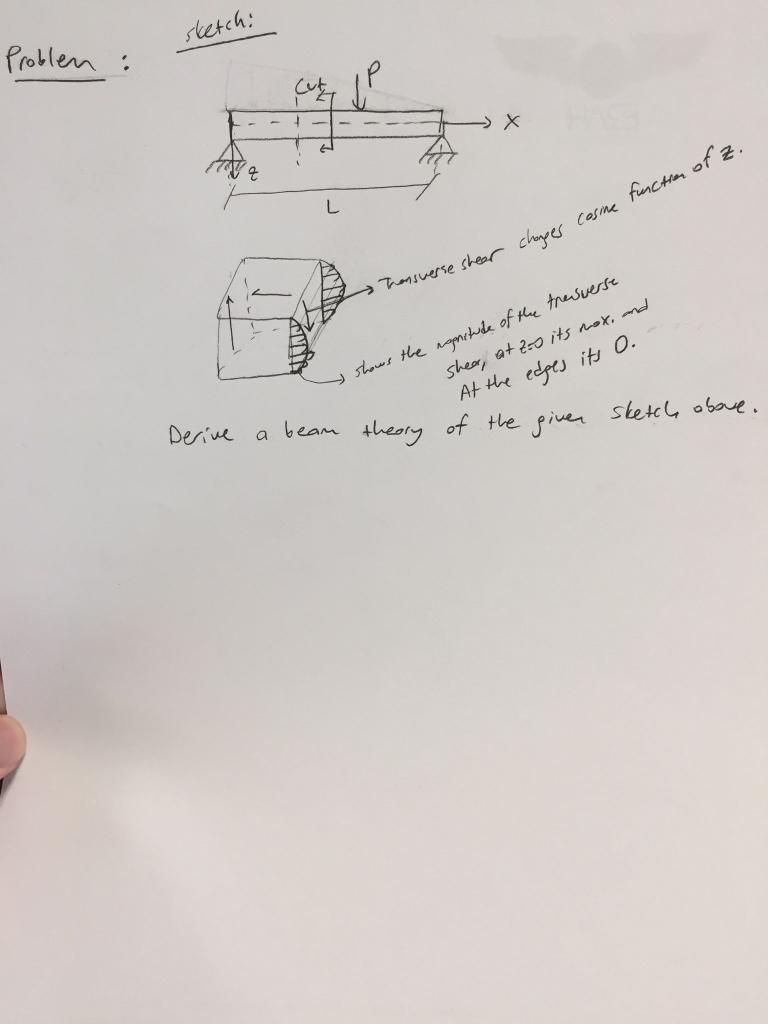 Problem :
sketch:
Cut
P
X
z
L
Transverse shear changes cosine function of z.
shows the magnitude of the transverse
shear, at z=0 its max. and
At the edges its 0.
Derive a beam theory of the given sketch above.